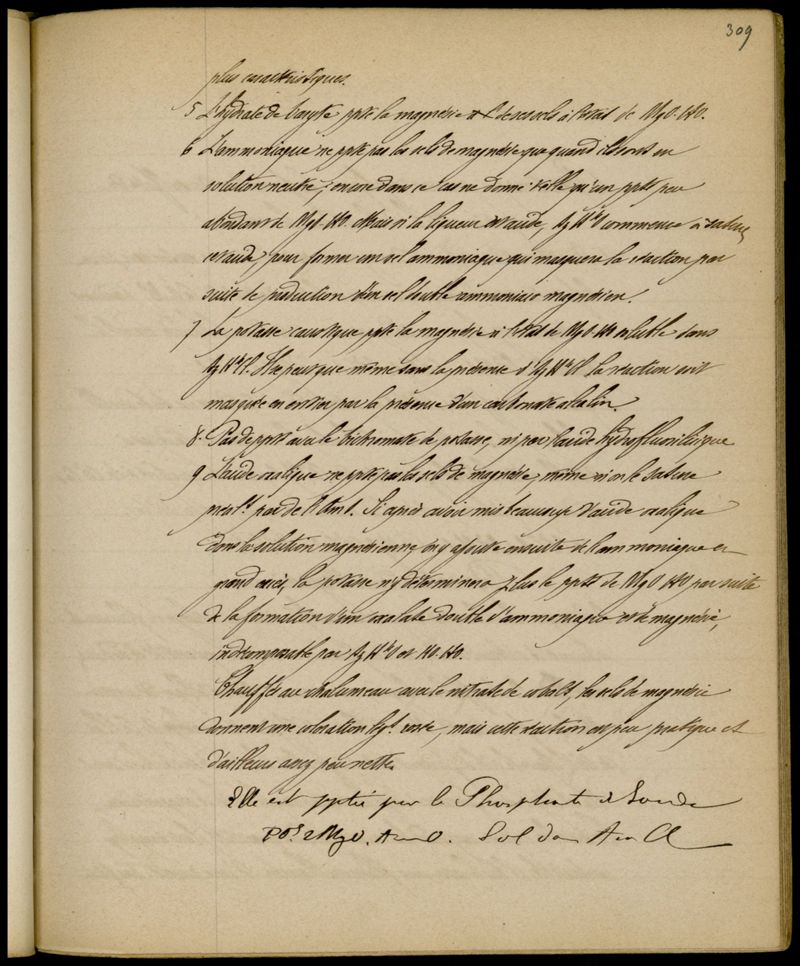 309
plus caractéristiques.
5 L'hydrate de baryte ppte la magnésie et de ses sels à l'état de MgO.HO.
6 L'ammoniaque ne ppte pas les sels de magnésie que quand ils sont en
solution neutre, encore dans ce cas ne donne-t-elle qu'un ppté peu
abondant de MgO.HO. Mais si la liqueur est acide, Az H⁴O commence à saturer
cet acide, pour former un sel ammoniaque qui masquera la réaction par
suite de production d'un sel double ammoniaco magnésien.
7 La potasse caustique ppte la magnésie à l'état de MgO HO soluble dans
Az H⁴Cl. Il se peut que même sans la présence d'Az H⁴Cl la réaction soit
masquée en entier par la présence d'un carbonate alcalin.
8. Pas de ppté avec le bichromate de potasse, ni par l'acide hydrofluosilicique
9 L'acide oxalique ne ppte pas les sels de magnésie, même si on le sature
par de l'Am O. Si après avoir mis beaucoup d'acide oxalique
dans la solution magnésienne, on y ajoute ensuite de l'ammoniaque en
grand excès, la potasse n'y déterminera plus le ppté de MgO HO par suite
de la formation d'un oxalate double d'ammoniaque et de magnésie,
indécomposable par Az H⁴O et KO.HO.
Chauffés au chalumeau avec le nitrate de cobalt, les sels de magnésie
donnent une coloration lég.t rosée, mais cette réaction est peu pratique et
d'ailleurs assez peu nette.
Elle est pptée par le Phosphate de Soude
PO⁵ 2MgO. AmO. Sol dans Am Cl